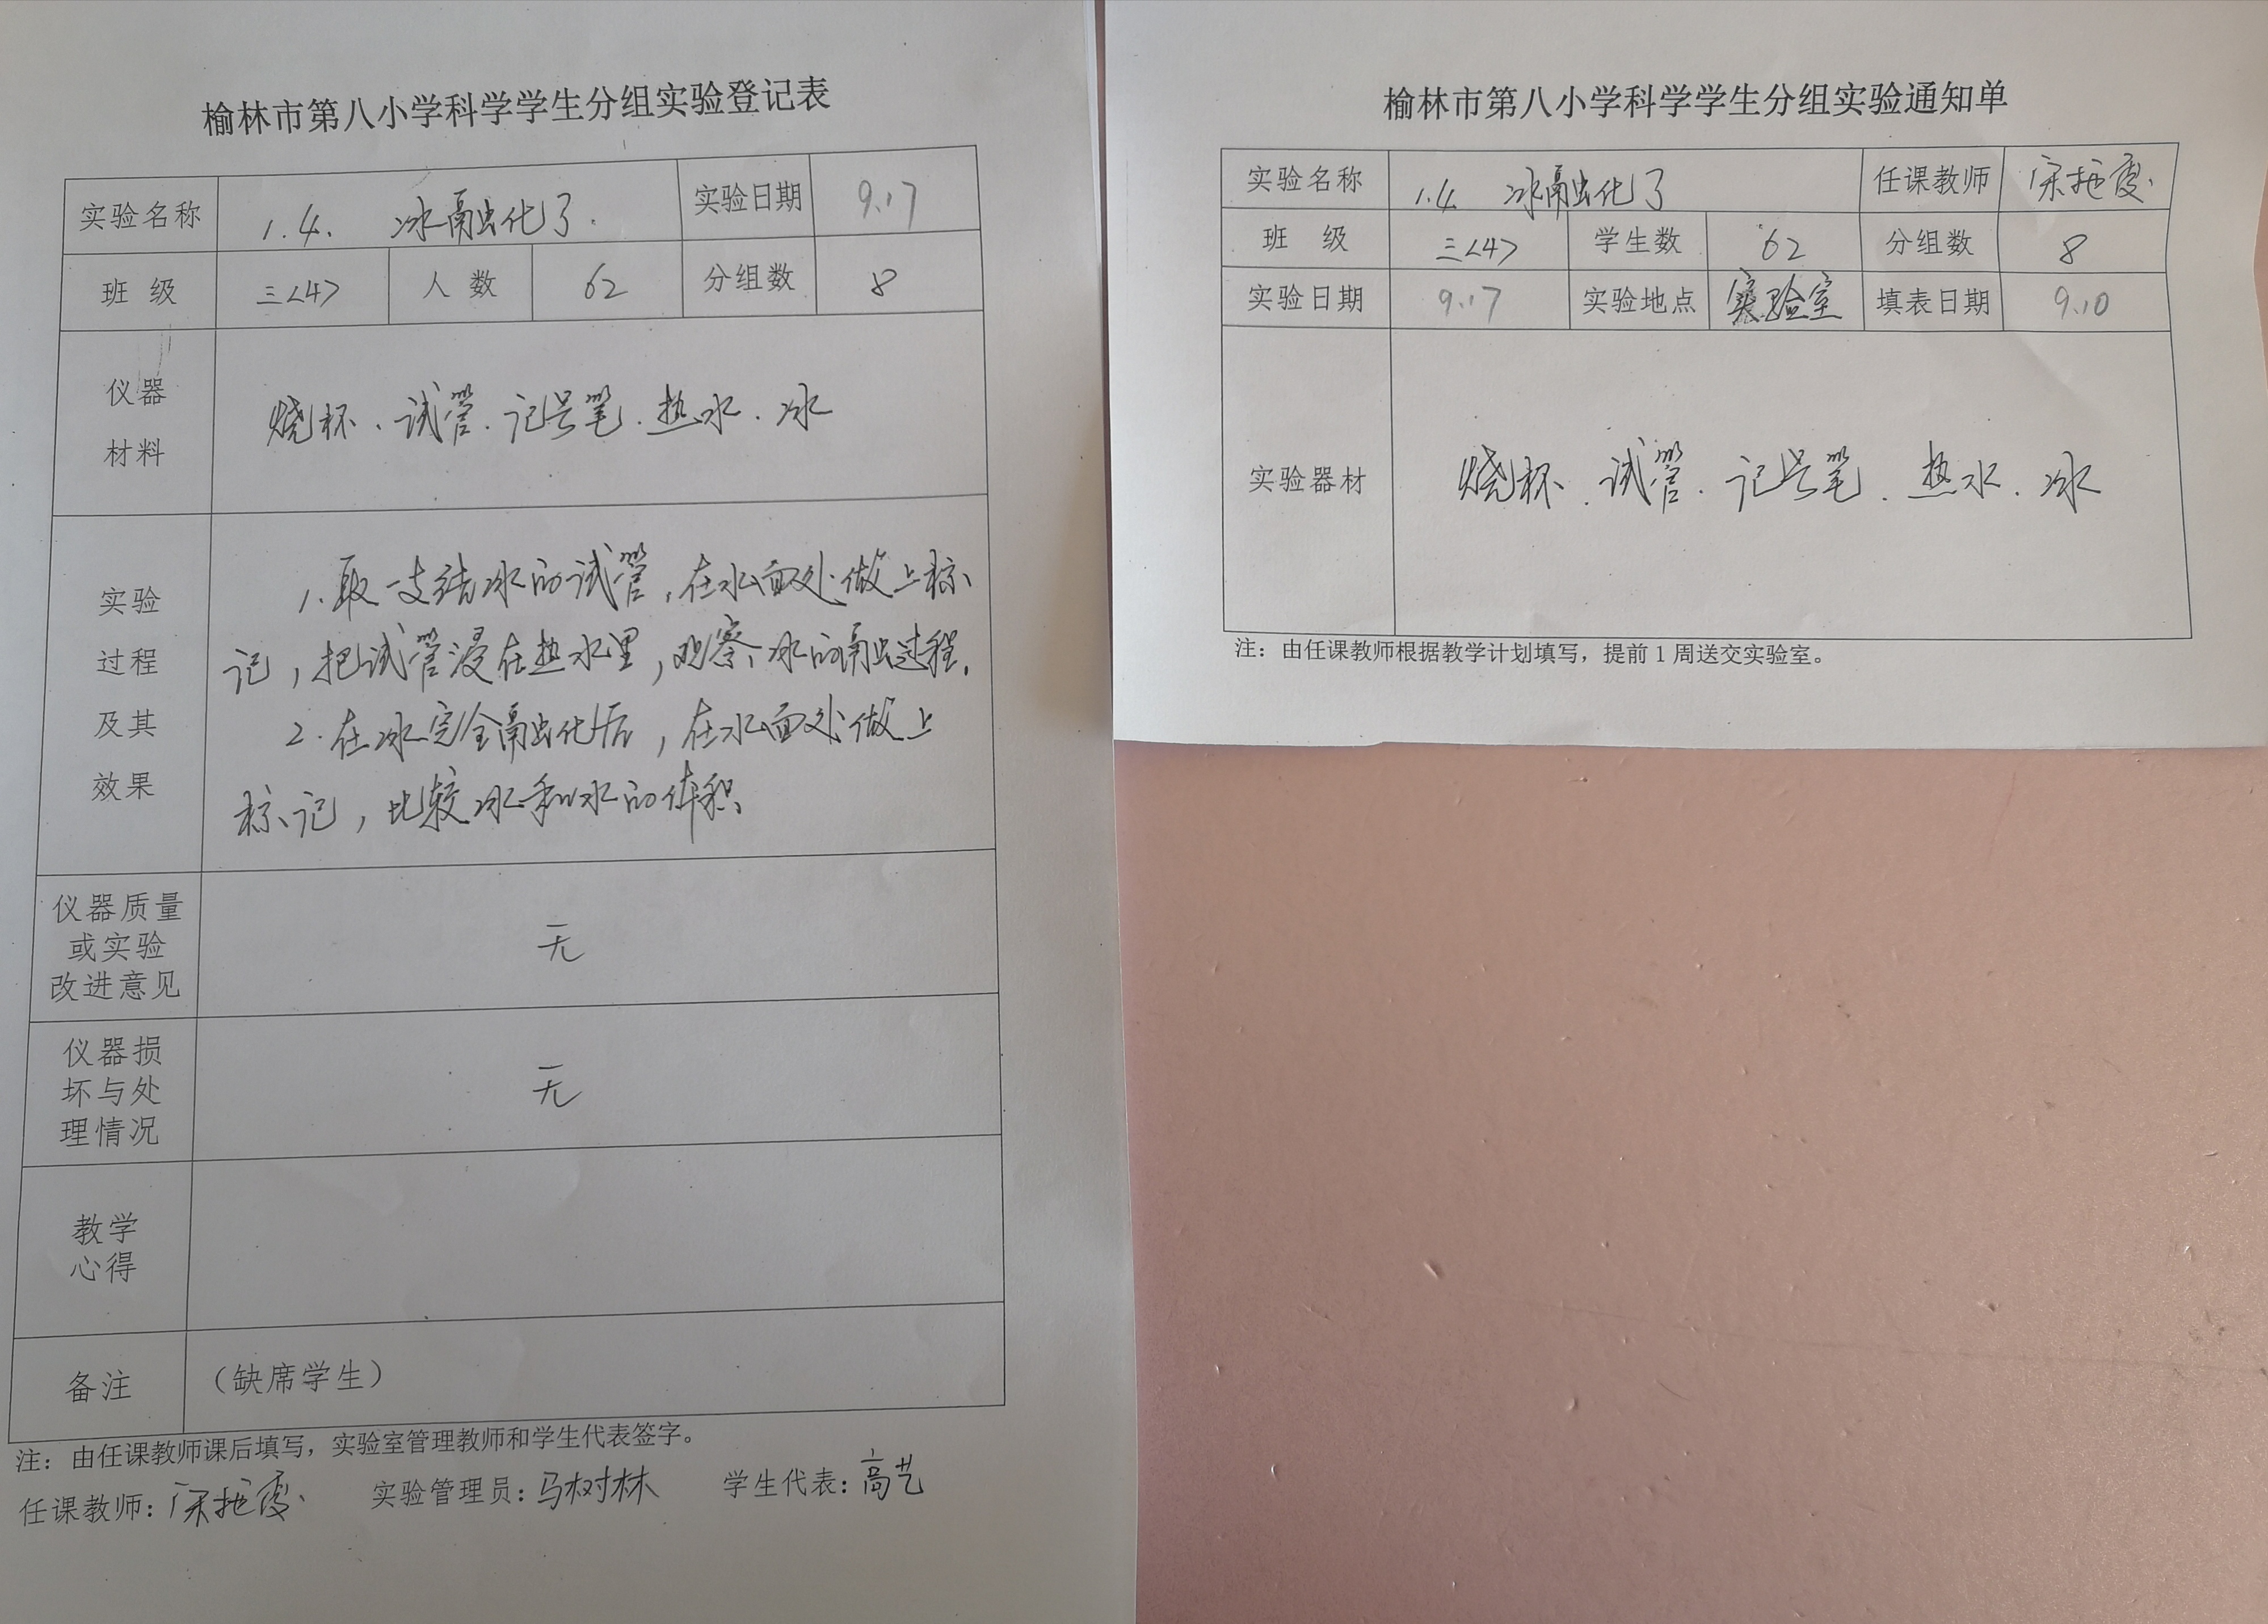 榆林市第八小学科学学生分组实验登记表
实验名称 1.4. 冰融化了. 实验日期 9.17
班 级 三<4> 人 数 62 分组数 8
仪器
材料
烧杯、试管、记号笔、热水、冰
实验
过程
及其
效果
1.取一支结冰的试管,在水面处做上标
记,把试管浸在热水里,观察冰的融过程.
2.在冰完全融化后,在水面处做上
标记,比较冰和水的体积
仪器质量
或实验
改进意见
无
仪器损
坏与处
理情况
无
教学
心得
备注 (缺席学生)
注:由任课教师课后填写,实验室管理教师和学生代表签字。
任课教师: 实验管理员:马树林 学生代表:高艺
榆林市第八小学科学学生分组实验通知单
实验名称 1.4. 冰融化了 任课教师
班 级 三<4> 学生数 62 分组数 8
实验日期 9.17 实验地点 实验室 填表日期 9.10
实验器材 烧杯、试管、记号笔、热水、冰
注:由任课教师根据教学计划填写,提前1周送交实验室。